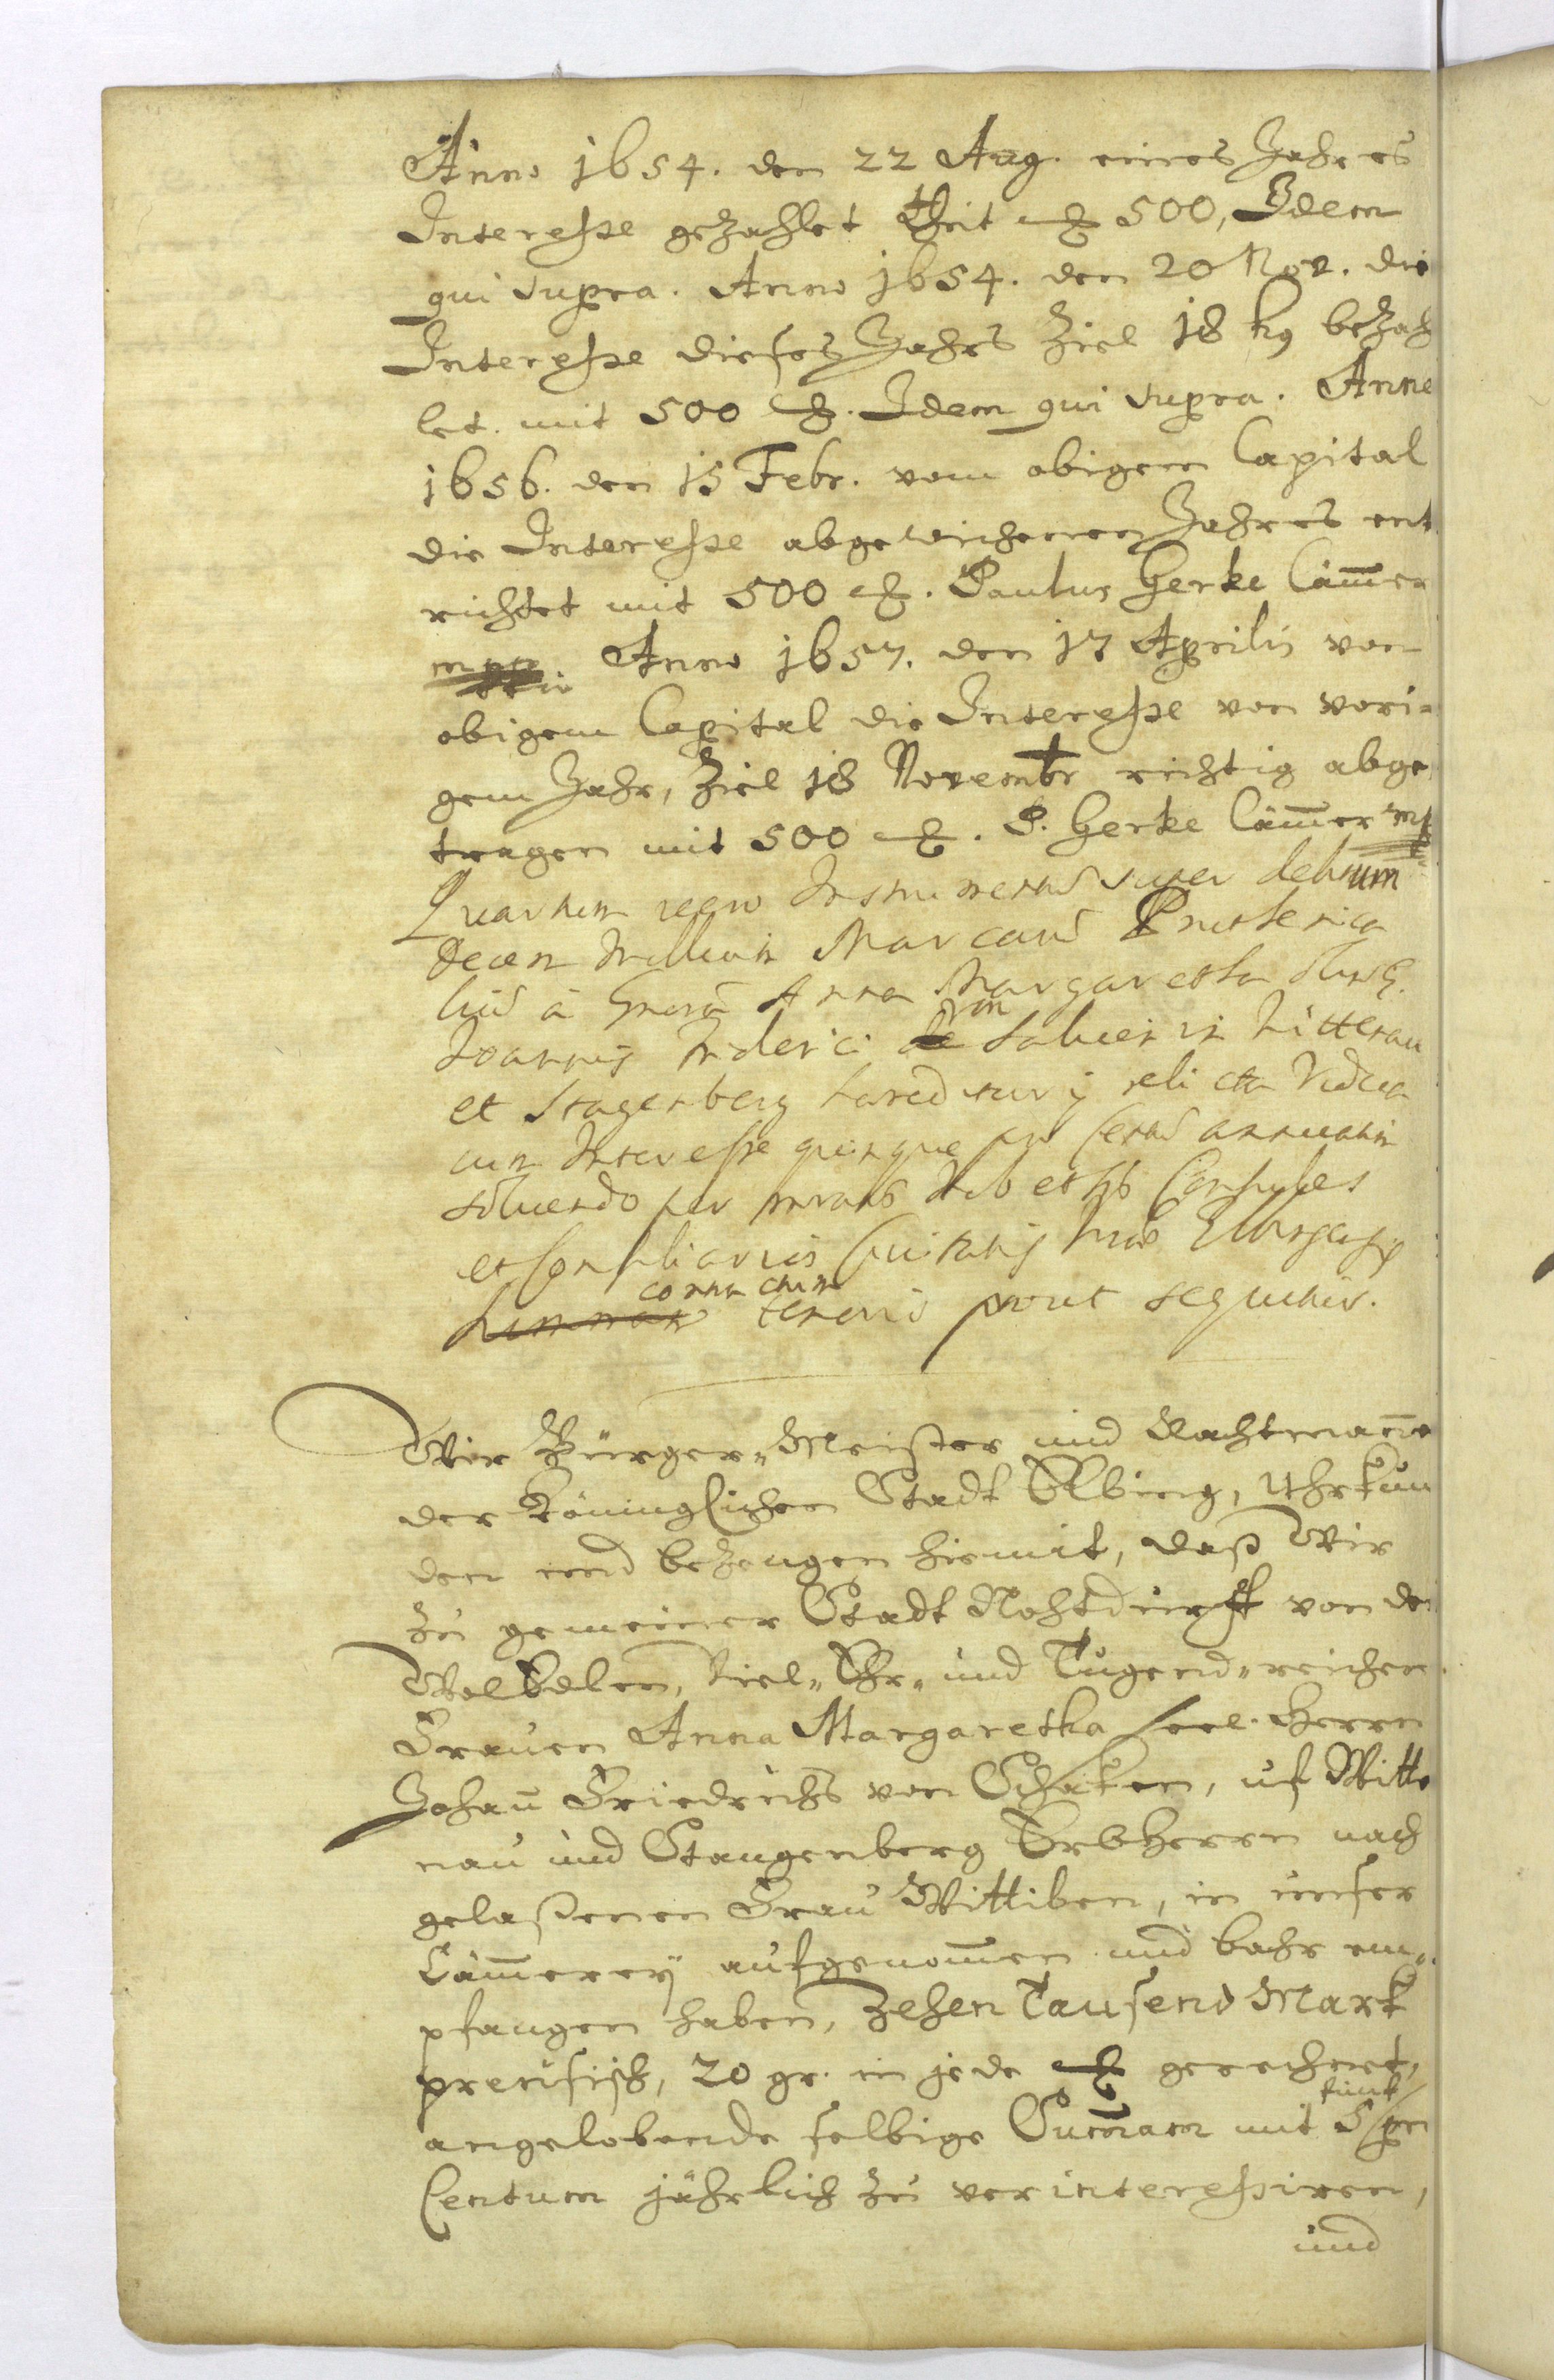 Anno 1654. den 22 Aug. eines Jahres
Interesse gezahlet mit ℳ 500, Idem
qui supra. Anno 1654. den 20 Nov. die
Interesse dieses Jahrs Ziel 18 bezah
let mit 500 ℳ. Idem qui supra. Anno
1656. den 15 Febr. vom obigem Capital
die Interesse abgewichenen Jahres ent
richtet mit 500 ℳ. Paulus Gerke Cämer
mpp. Anno 1657. den 17 Aprilis von
obigem Capital die Interesse von vori-
gem Jahr, Ziel 18 Novembr richtig abge
tragen mit 500 ℳ. P. Gerke Cämer mp
Quartum vero Instrumentum super debitum
decem Millium Marcarum Prutenica
lium à Anna Margaretha
Joannis Friderici von in Wittenau
et Stangenberg relicta Vidua
cum Interesse quinque pro Centum annuatim
solvendo per et Consules
et Consiliarios Civitatis Elbingensis
contractum tenoris prout sequitur.
Wir Bürger-Meister und Rachtmanne
der Königlichen Stadt Elbing, Uhrkun
den und bezeugen hiemit, dass Wir
zu gemeiner Stadt Nohtdurft von der
WolEdelen, Viel- Ehr- und Tugend-reichen
Frauen Anna Margaretha Seel. Herrn
Johan Friedrichs von Schaken, uf Witte
nau und Stangenberg ErbHerrn nach
gelassenen Frau Wittiben, in unser
Cämmerey aufgenommen und bahr em-
pfangen haben, Zehen Tausend Mark
preusisch, 20 gr. in jede ℳ gerechnet,
angelobende selbige Summam mit fünf pro
Centum jährlich zu verinteressiren,
und